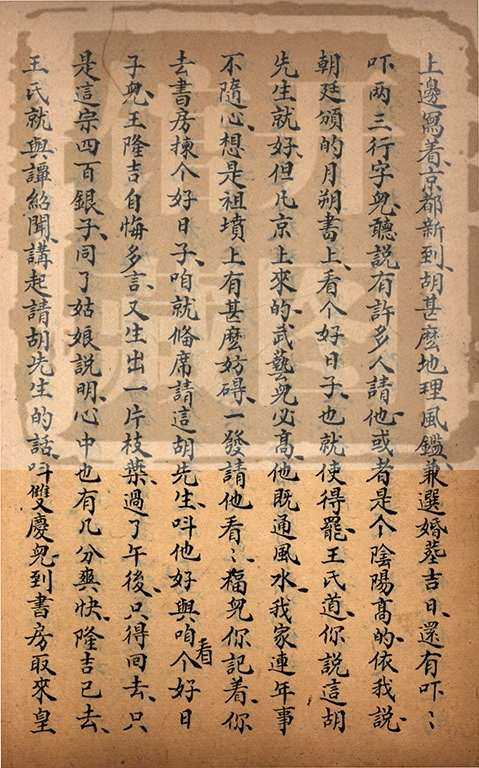 上邊寫着、京都新到、胡甚麽地理風鑑、兼選婚塟吉日、還有吓〻
吓两三行字兒、聽說有許多人請他、或者是个陰陽高的、依我說、
朝廷頒的月朔書上、看个好日子、也就使得罷、王氏道、你說這胡
先生就好、但凡京上來的、武藝兒必高、他既通風水、我家連年事
不隨心、想是祖墳上有甚麽妨碍、一發請他看〻、福兒你記着、你
去書房揀个好日子、咱就俻席請這胡先生、呌他好與咱看个好日
子兒、王隆吉自悔多言、又生出一片枝葉、過了午後、只得囬去、只
是這宗四百銀子、同了姑娘說明、心中也有几分爽快、隆吉已去、
王氏就與譚紹聞、講起請胡先生的話、呌雙慶兒到書房取來皇